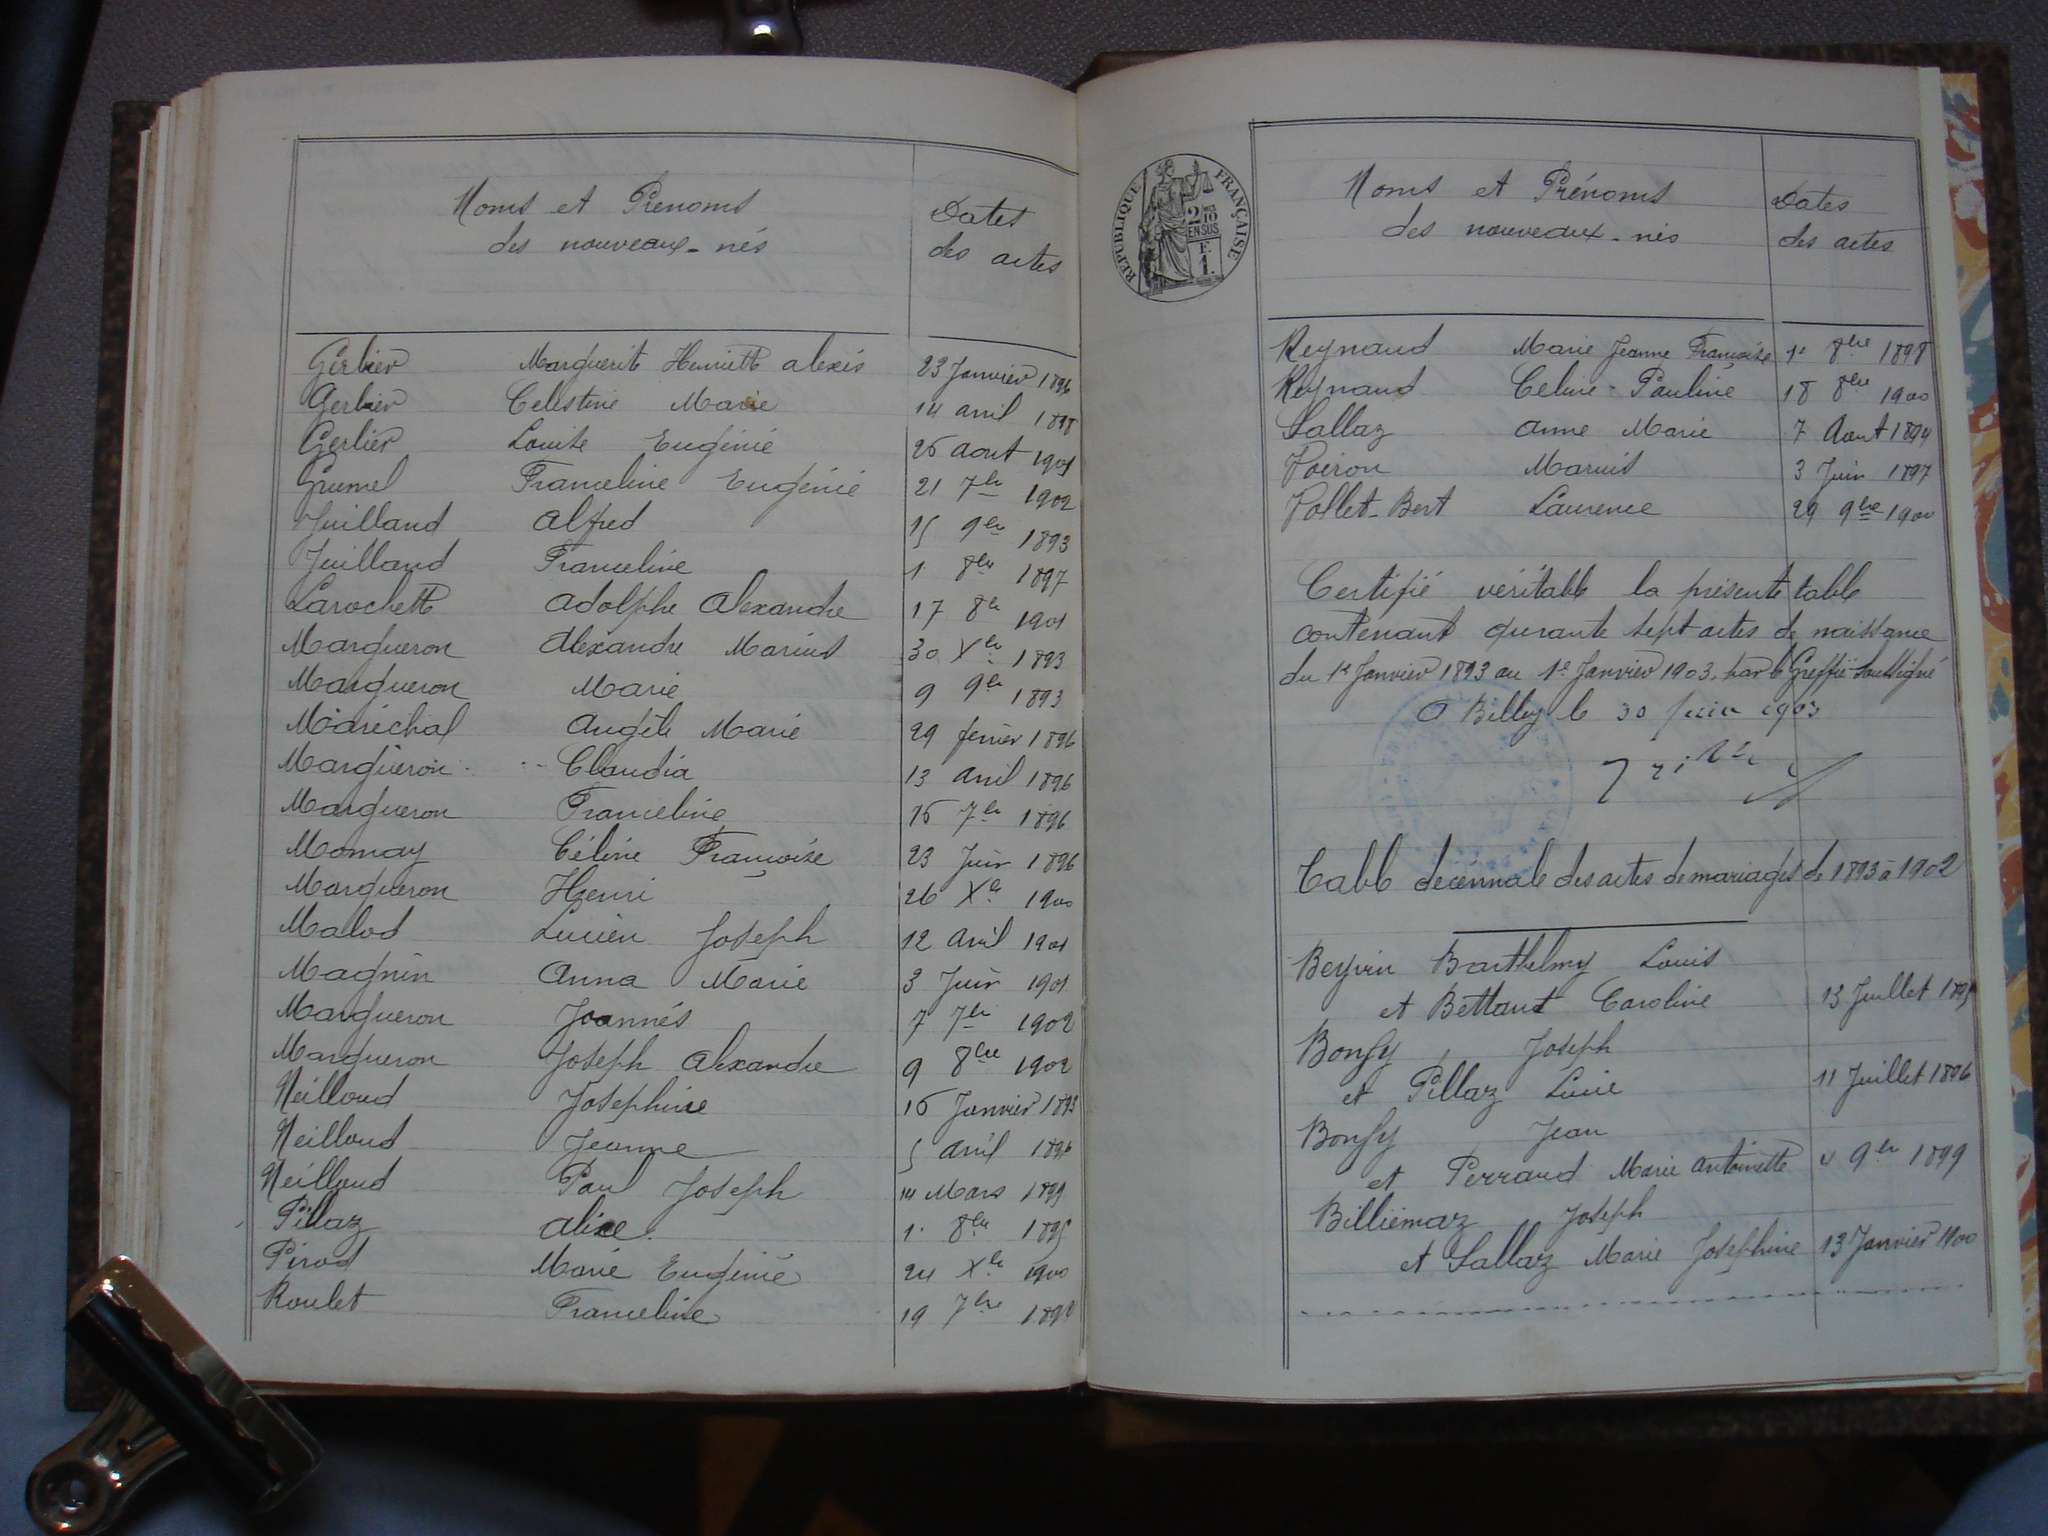 Noms et Prenoms
des nouveaux-nés
Dates
des actes
Gerbier Marguerite Henriette Alexis 23 Janvier 1896
Gerbier Celestine Marie 14 avril 1898
Gerbier Louise Eugénie 26 aout 1901
Grumel Franceline Eugénie 21 7bre 1902
Juilland Alfred 15 9bre 1893
Juilland Franceline 1 8bre 1897
Larochette Adolphe Alexandre 17 8bre 1901
Margueron Alexandre Marius 30 Xbre 1893
Margueron Marie 9 9bre 1893
Maréchal Angèle Marie 29 fevrier 1896
Margueron Claudia 13 avril 1896
Margueron Franceline 16 7bre 1896
Momay Céline Françoise 23 Juin 1896
Margueron Henri 26 Xbre 1900
Malod Lucien Joseph 12 Avril 1901
Magnin Anna Marie 3 Juin 1901
Margueron Joannés 7 7bre 1902
Margueron Joseph Alexandre 9 8bre 1902
Neilloud Josephine 16 Janvier 1893
Neilloud Jeanne 5 Avril 1896
Neilloud Paul Joseph 14 Mars 1899
Pillaz Alice 1er 8bre 1895
Pirod Marie Eugénie 24 Xbre 1900
Roulet Franceline 19 7bre
RÉPUBLIQUE FRANÇAISE
2/10
EN SUS
F.
1.
Noms et Prénoms
des nouveaux-nés
Dates
des actes
Reynaud Marie Jeanne Françoise 1er 8bre 1898
Reynaud Celine Pauline 18 8bre 1900
Sallaz Anne Marie 7 Aout 1894
Voiron Marius 3 Juin 1897
Vollet-Bert Laurence 29 9bre 1900
Certifié véritable la présente table
contenant qurante sept actes de naissance
du 1er Janvier 1893 au 1er Janvier 1903, par le Greffier Soussigné
A Belley le 30 Juin 1903
Table décennale des actes de mariages de 1893 à 1902
Beyrin Barthelmy Louis
et Bettant Caroline 13 Juillet 1895
Bonfy Joseph
et Pillaz Lucie 11 Juillet 1896
Bonfy Jean
et Perraud Marie Antoinette 4 9bre 1899
Billiemaz Joseph
et Sallaz Marie Josephine 13 Janvier 1900